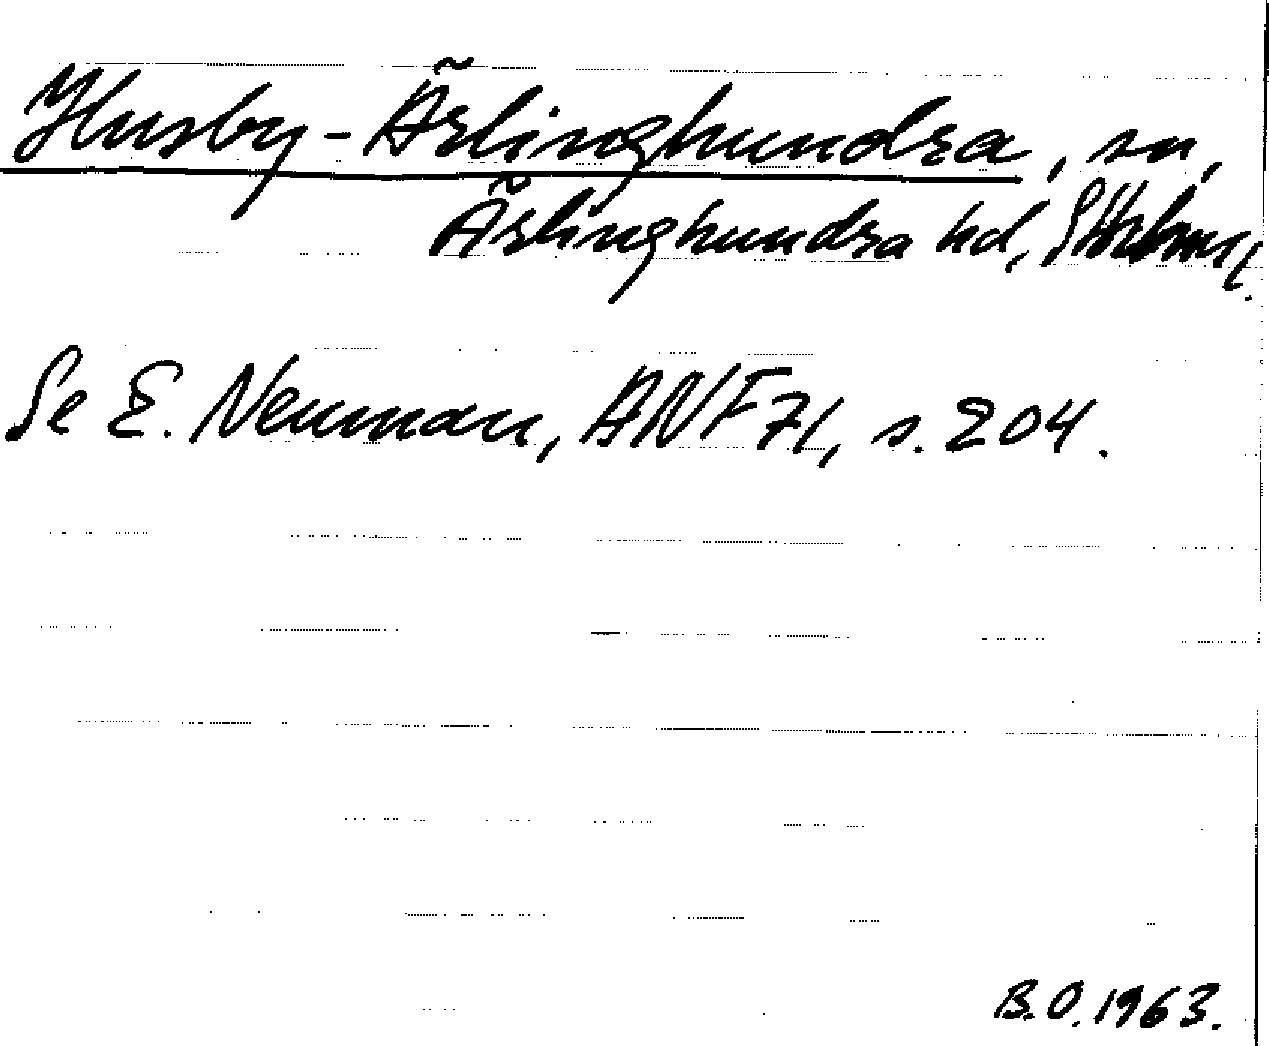 Husby-Ärlinghundra, sn,
Ärlinghundra hd,
Se E. Neuman, ANF 71, s. 204.
B.O. 1963.